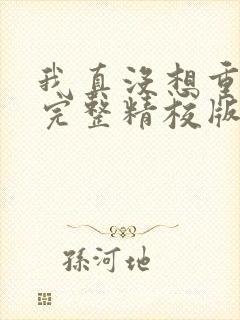 我真没想重
完整精校版
孫河地